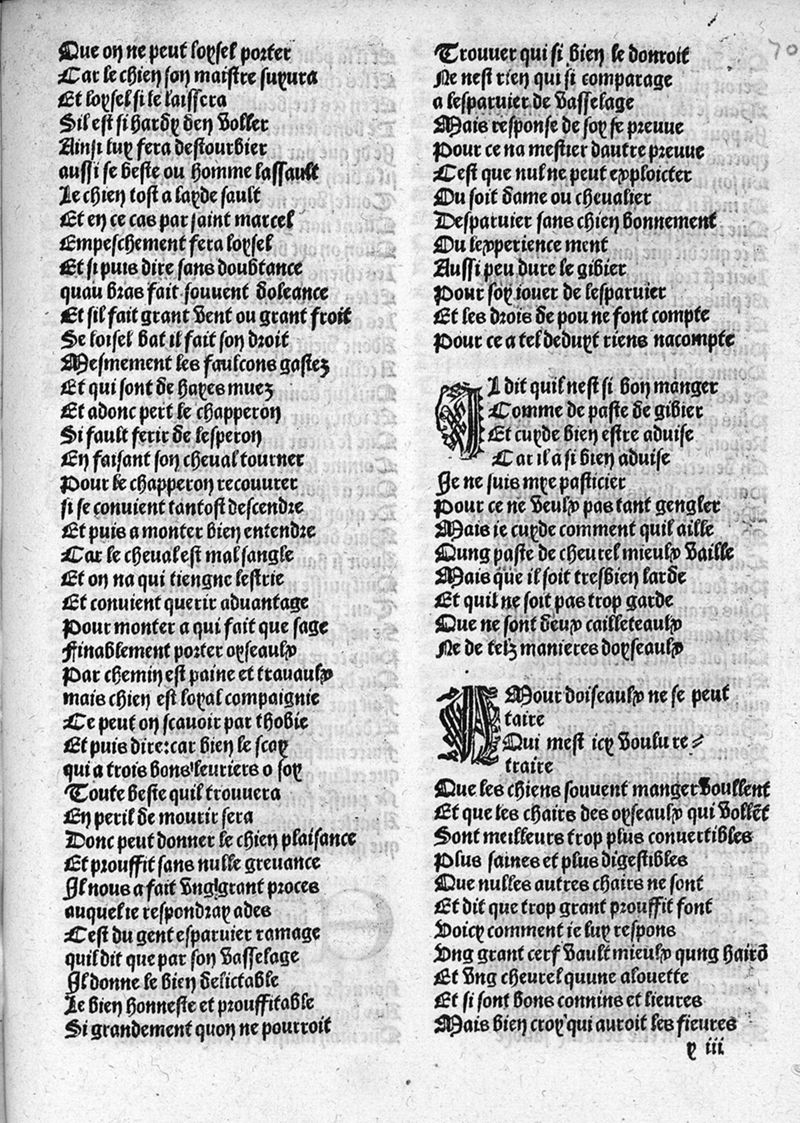 Que on ne peut loysel porter
Car le chien son maistre suyura
Et loysel si le laissera
Sil est si hardy den voller
Ainsi luy fera destourbier
aussi se beste ou homme lassault
Le chien tost a layde sault
Et en ce cas par saint marcel
Empeschement fera loysel
Et si puis dire sans doubtance
quau bras fait souvent doleance
Et sil fait grant vent ou grant froit
Se loisel bat il fait son droit
Mesmement les faulcons gastez
Et qui sont de hayes muez
Et adonc pert le chapperon
Si fault ferir de lesperon
En faisant son cheval tourner
Pour le chapperon recouurer
si se conuient tantost descendre
Et puis a monter bien entendre
Car le cheval est mal sangle
Et on na qui tiengne lestrie
Et conuient querir aduantage
Pour monter a qui fait que sage
Finablement porter oyseaulx
Par chemin est paine et trauaulx
mais chien est loyal compaignie
Ce peut on scauoir par thobie
Et puis dire:car bien le scay
qui a trois bons leuriers o soy
Toute beste quil trouuera
En peril de mourir sera
Donc peut donner le chien plaisance
Et prouffit sans nulle greuance
Il nous a fait vng grant proces
auquel ie respondray ades
Cest du gent esparuier ramage
quil dit que par son vasselage
Il donne le bien delictable
Le bien honneste et prouffitable
Si grandement quon ne pourroit
Trouuer qui si bien le donroit
Ne nest rien qui si comparage
a lesparuier de vasselage
Mais response de soy se preuue
Pour ce na mestier dautre preuue
Cest que nul ne peut exploicter
Ou soit dame ou chevalier
Desparuier sans chien bonnement
Ou lexperience ment
Aussi peu dure le gibier
Pour soy iouer de lesparuier
Et les drois de pou ne font compte
Pour ce a tel deduyt riens nacompte
Il dit quil nest si bon manger
Comme de paste de gibier
Et cuyde bien estre aduise
Car il a si bien aduise
Je ne suis mye pasticier
Pour ce ne veulx pas tant gengler
Mais ie cuyde comment quil aille
Qung paste de cheurel mieulx vaille
Mais que il soit tresbien larde
Et quil ne soit pas trop garde
Que ne sont deux cailleteaulx
Ne de telz manieres doyseaulx
AMour doiseaulx ne se peut
taire
Qui mest icy voulu re⸗
traire
Que les chiens souvent manger voullent
Et que les chairs des oyseaulx qui vollēt
Sont meilleurs trop plus conuertibles
Plus saines et plus digestibles
Que nulles autres chairs ne sont
Et dit que trop grant prouffit font
Voicy comment ie luy respons
Vng grant cerf vault mieulx qung hairō
Et vng cheurel quune alouette
Et si sont bons connins et lieures
Mais bien croy qui auroit les fieures
y iii
70